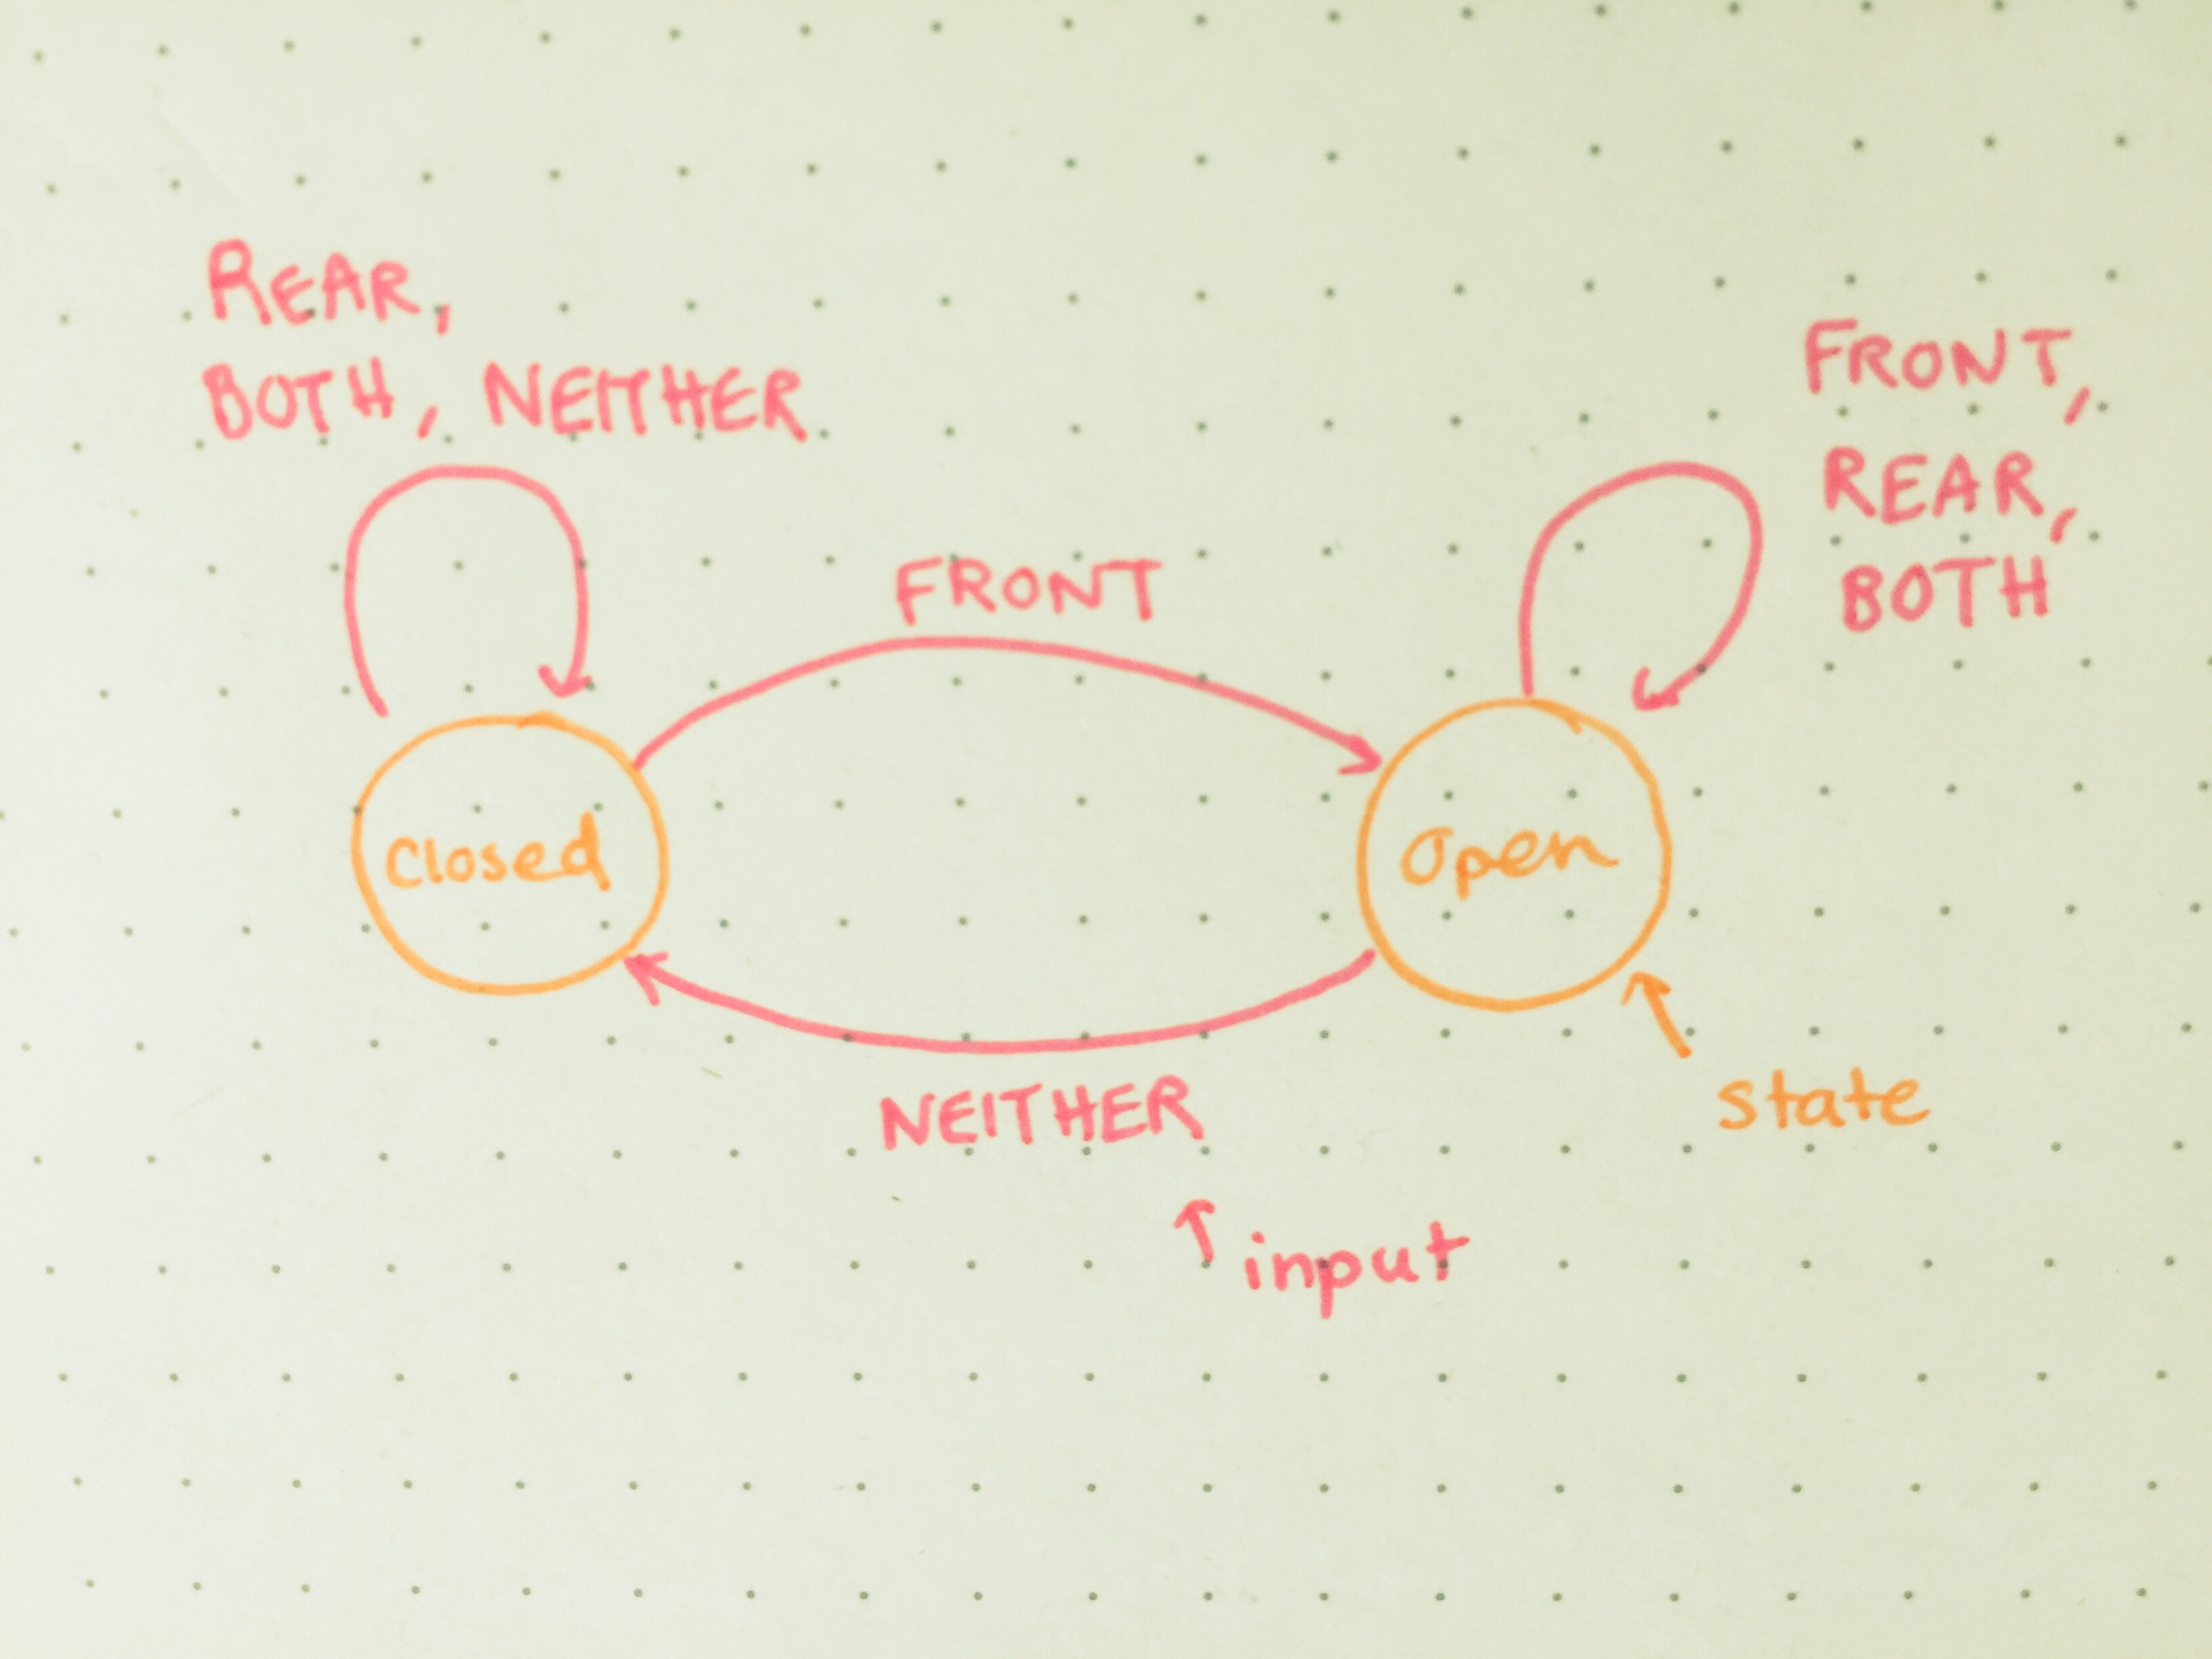 REAR,
BOTH, NEITHER
FRONT,
REAR,
BOTH
FRONT
Closed
Open
NEITHER
state
input